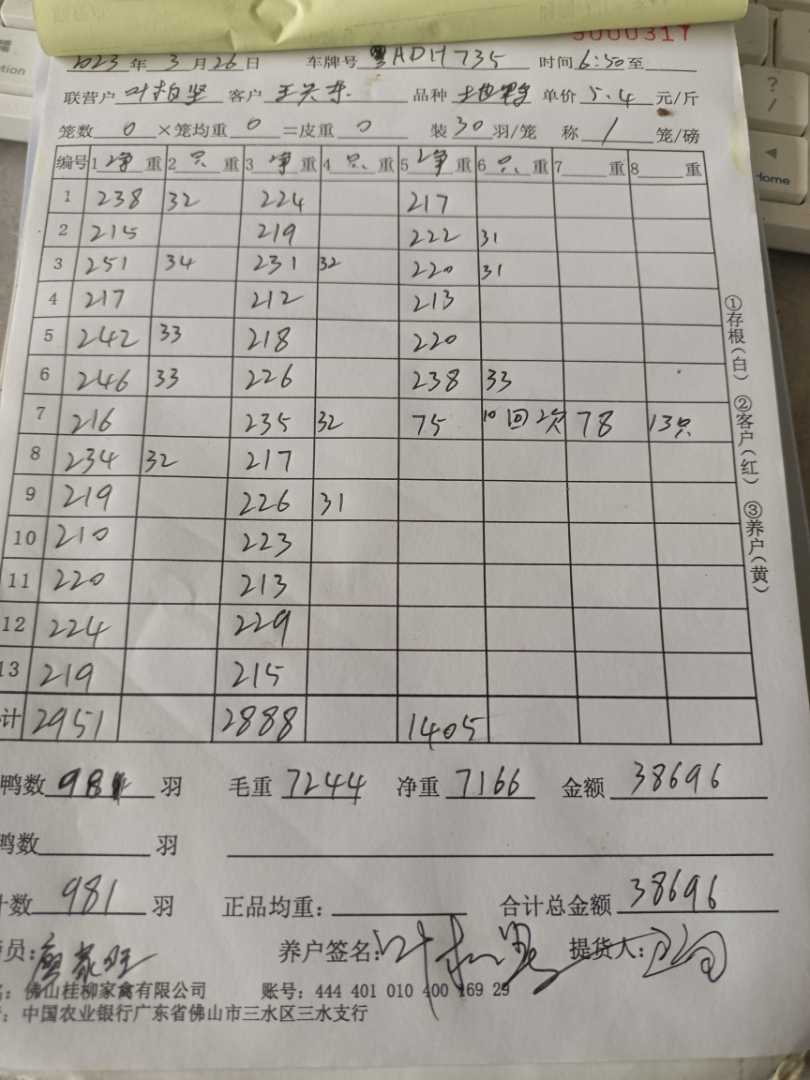 5000317
2023年3月26日 车牌号 粤ADH735 时间6:50至
联营户 叶柏坚 客户 品种 单价 5.4 元/斤
笼数 0 ×笼均重 0 =皮重 0 装30羽/笼 称 1 笼/磅
编号 1净重 2只重 3净重 4只重 5净重 6只重 7重 8重
1 238 32 224 217
2 215 219 222 31
3 251 34 231 32 220 31
4 217 212 213
5 242 33 218 220
6 246 33 226 238 33
7 216 235 32 75 10回2次 78 13只
8 234 32 217
9 219 226 31
10 210 223
11 220 213
12 224 229
13 219 215
计 2951 2888 1405
鸭数 981 羽 毛重 7244 净重 7166 金额 38696
鸭数 羽
计数 981 羽 正品均重: 合计总金额 38696
员: 养户签名: 提货人:
名: 佛山桂柳家禽有限公司 账号: 444 401 010 400 169 29
: 中国农业银行广东省佛山市三水区三水支行
①存根(白) ②客户(红) ③养户(黄)
?
/
Home